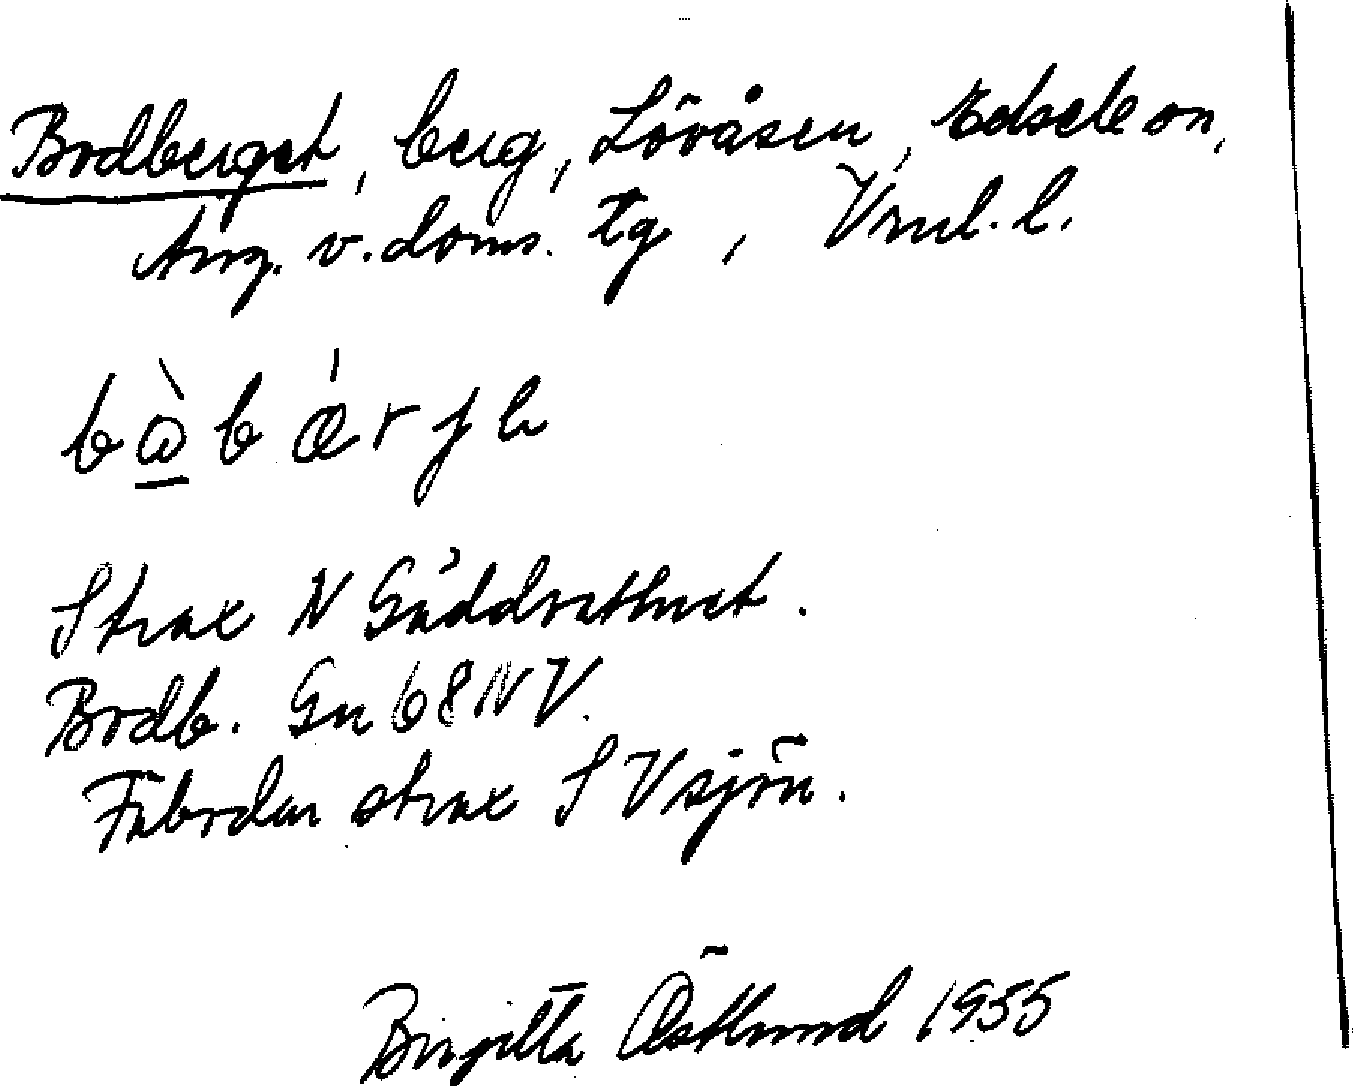 Bodberget, berg, Lövåsen, Edsele sn,
Ång. v. doms. tg, Vnl. l.
bὼbǽrjh
Strax N Gäddvattnet.
Bodb. Gn 68 NV.
Fäbodar strax S Vsjön.
Birgitta Östlund 1955